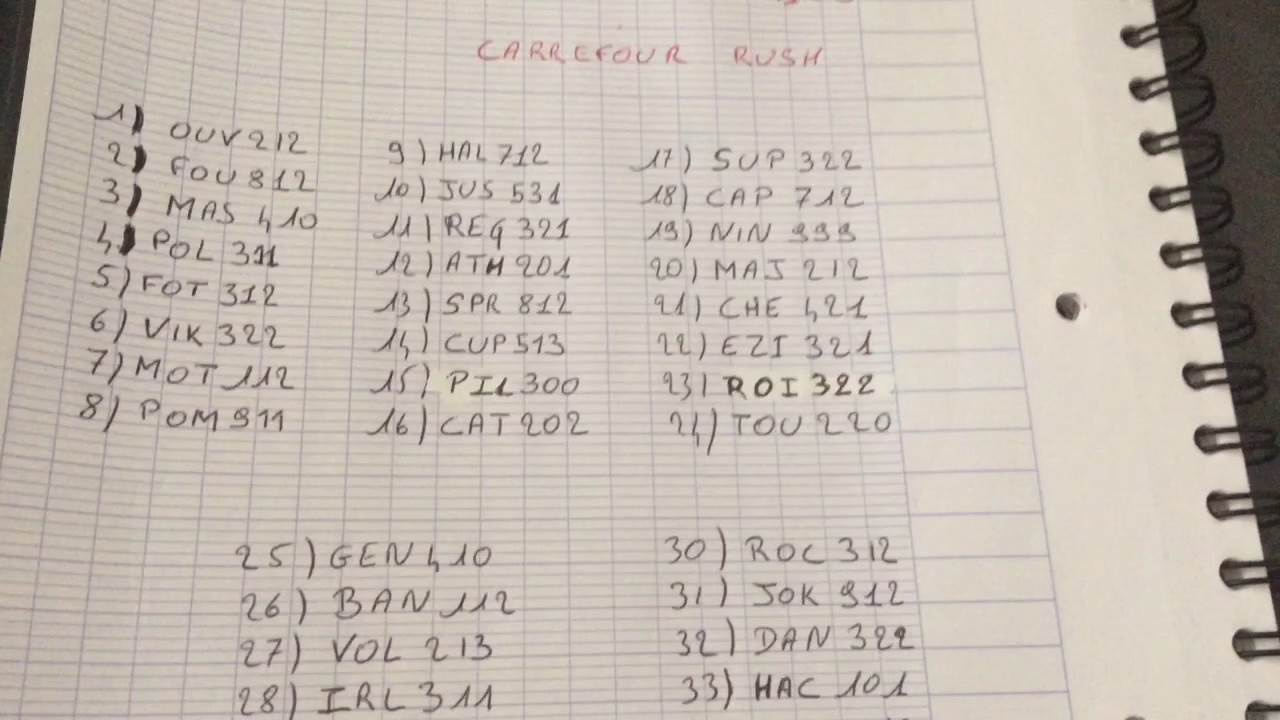 CARREFOUR RUSH
1) OUV 212
2) FOU 812
3) MAS 410
4) POL 311
5) FOT 312
6) VIK 322
7) MOT 112
8) POM 911
9) HAL 712
10) JUS 531
11) REG 321
12) ATH 201
13) SPR 812
14) CUP 513
15) PIL 300
16) CAT 202
17) SUP 322
18) CAP 712
19) NIN 999
20) MAJ 212
21) CHE 421
22) EZI 321
23) ROI 322
24) TOU 220
25) GEN 410
26) BAN 112
27) VOL 213
28) IRL 311
30) ROC 312
31) JOK 912
32) DAN 322
33) HAC 101